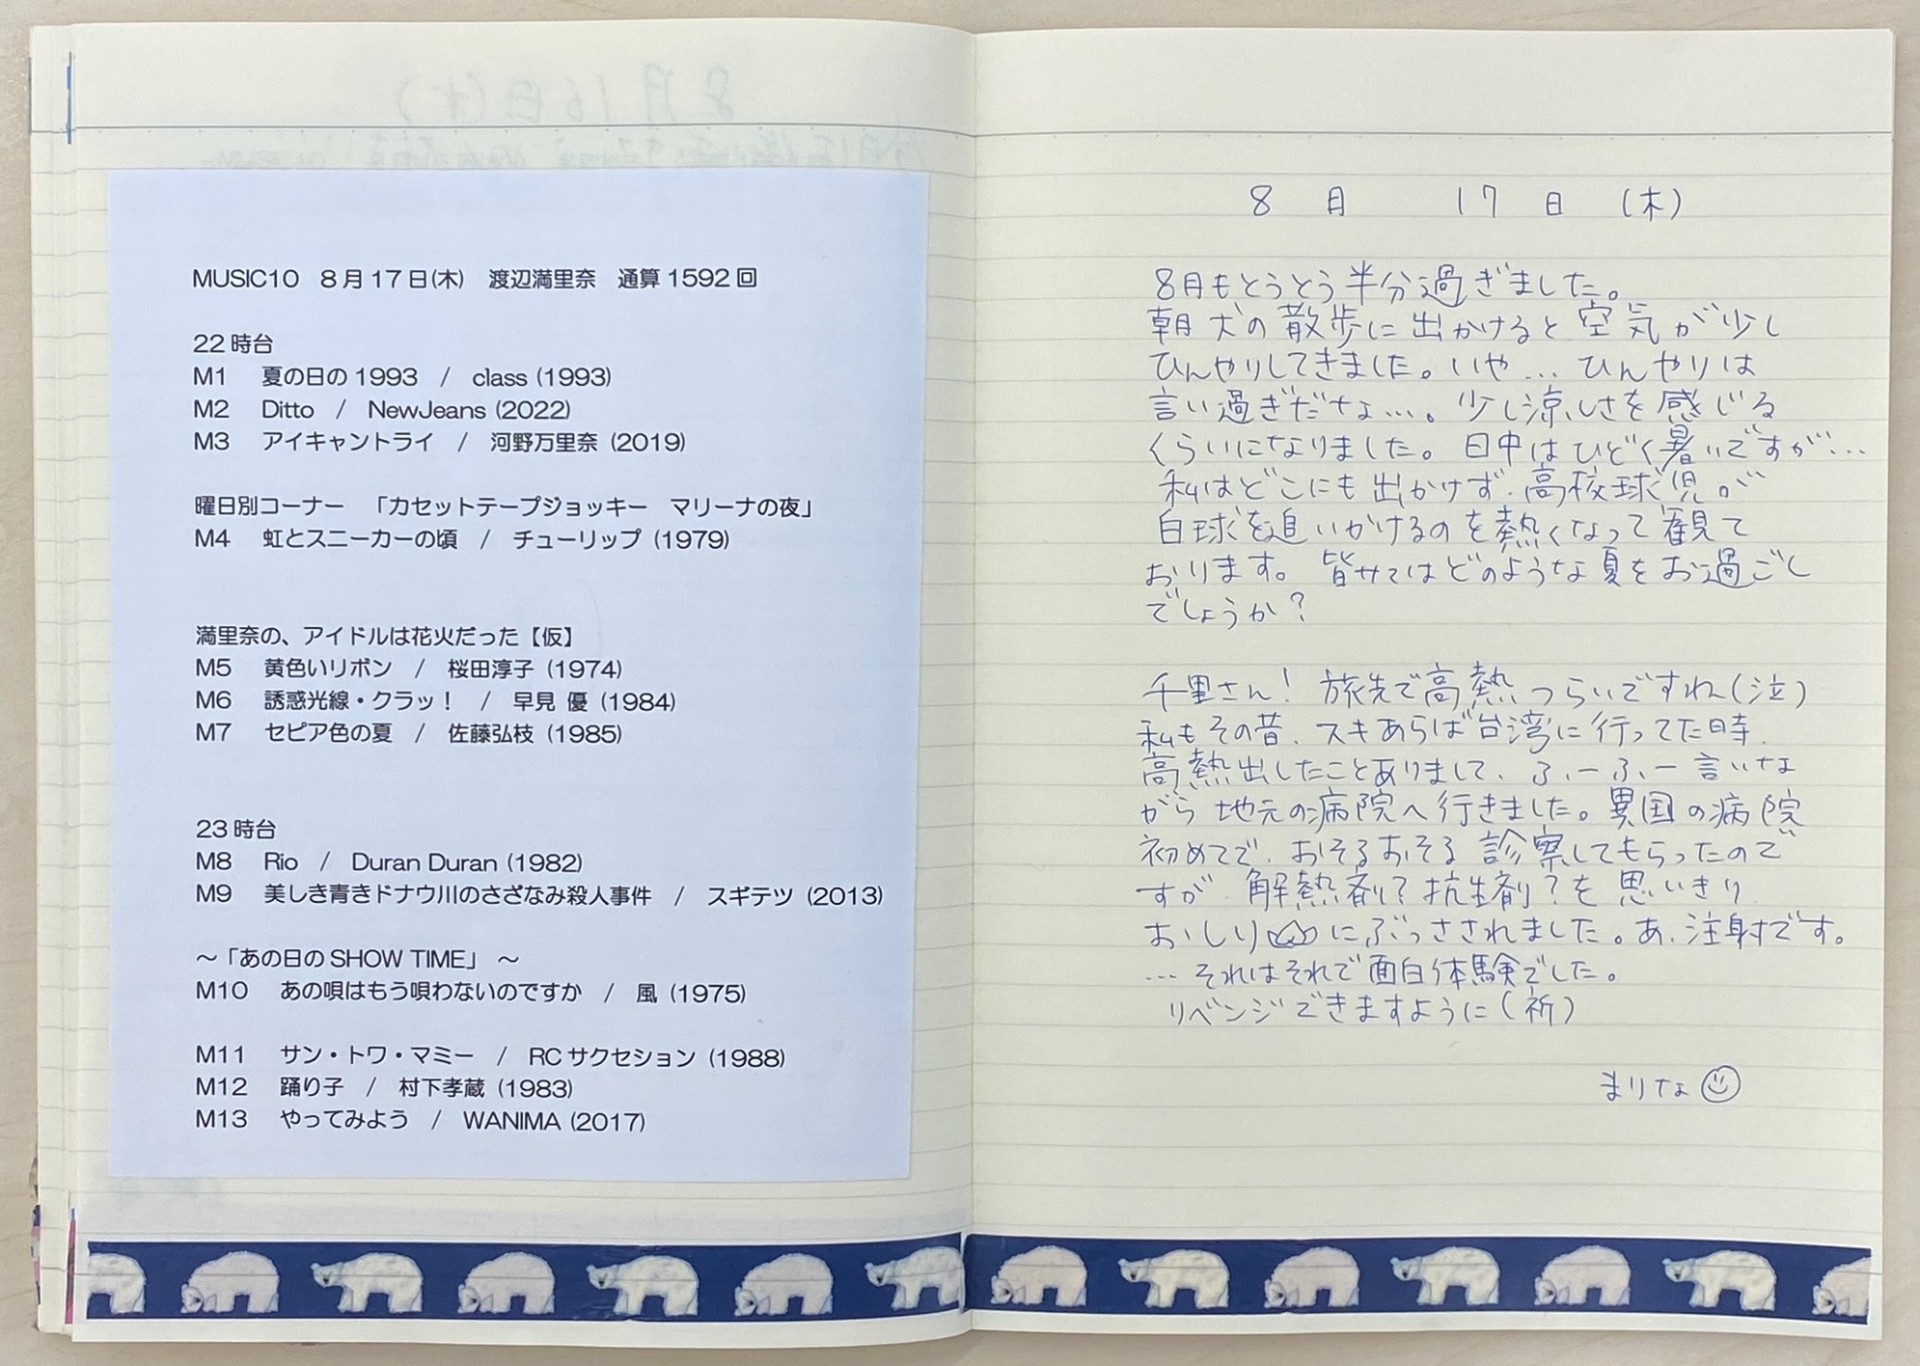 MUSIC10　8月17日(木)　渡辺満里奈　通算1592回
22時台
M1　夏の日の1993　/　class (1993)
M2　Ditto　/　NewJeans (2022)
M3　アイキャントライ　/　河野万里奈 (2019)
曜日別コーナー　「カセットテープジョッキー　マリーナの夜」
M4　虹とスニーカーの頃　/　チューリップ (1979)
満里奈の、アイドルは花火だった【仮】
M5　黄色いリボン　/　桜田淳子 (1974)
M6　誘惑光線・クラッ！　/　早見 優 (1984)
M7　セピア色の夏　/　佐藤弘枝 (1985)
23時台
M8　Rio　/　Duran Duran (1982)
M9　美しき青きドナウ川のさざなみ殺人事件　/　スギテツ (2013)
～「あの日のSHOW TIME」～
M10　あの唄はもう唄わないのですか　/　風 (1975)
M11　サン・トワ・マミー　/　RCサクセション (1988)
M12　踊り子　/　村下孝蔵 (1983)
M13　やってみよう　/　WANIMA (2017)
8月　17日　(木)
8月もとうとう半分過ぎました。
朝犬の散歩に出かけると空気が少し
ひんやりしてきました。いや…ひんやりは
言い過ぎだな…。少し涼しさを感じる
くらいになりました。日中はひどく暑いですが…
私はどこにも出かけず、高校球児が
白球を追いかけるのを熱くなって観て
おります。皆サマはどのような夏をお過ごし
でしょうか？
千里さん！旅先で高熱つらいですね(泣)
私もその昔、スキあらば台湾に行ってた時、
高熱出したことありまして、ふーふー言いな
がら地元の病院へ行きました。異国の病院
初めてで、おそるおそる診察してもらったので
すが、解熱剤？抗生剤？を思いきり
おしりにぶっさされました。あ、注射です。
…それはそれで面白体験でした。
リベンジできますように(祈)
まりな